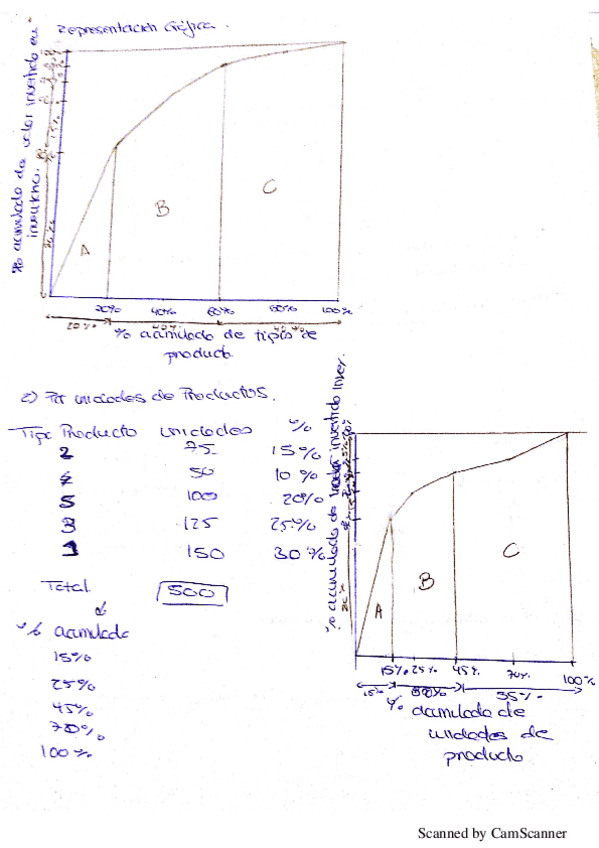 Representación Gráfica.
% acumulado de valor invertido en
inventario.
A
B
C
20% 40% 60% 80% 100%
20% 40% 40%
% acumulado de tipos de
producto.
2) Por unidades de Productos.
Tipo Producto unidades %
2 75 15%
4 50 10%
5 100 20%
3 125 25%
1 150 30%
Total 500
% acumulado
15%
25%
45%
70%
100%
% acumulado de valor invertido inver.
A
B
C
15% 25% 45% 70% 100%
15% 30% 55%
% acumulado de
unidades de
producto
Scanned by CamScanner